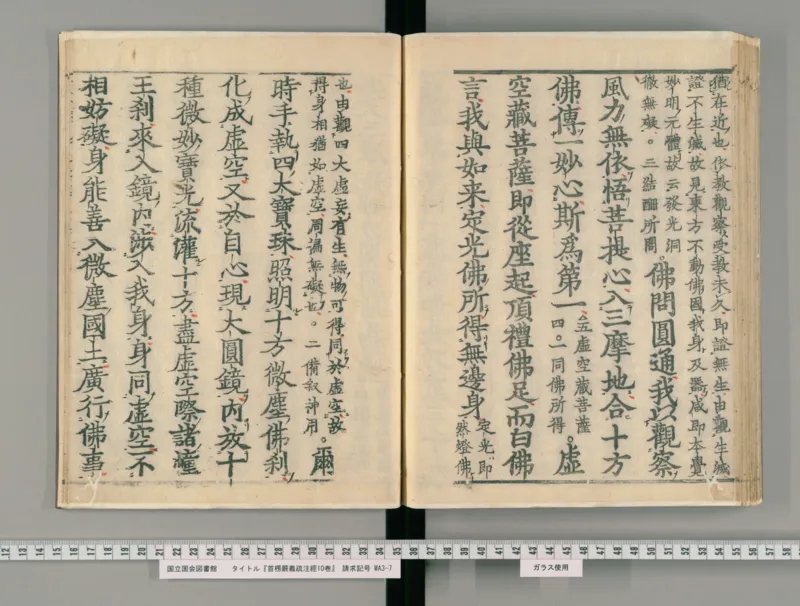 猶在近也依教觀察受教未久即證無生由觀生滅
證不生滅故見東方不動佛國我身及器咸即本覺
妙明元體故云發光洞
徹無礙。三結酬所問
。佛問圓通我以觀察
風力無依悟菩提心入三摩地合十方
佛傳一妙心斯爲第一
五虛空藏菩薩
四。二同佛所得
。虛
空藏菩薩即從座起頂禮佛足而白佛
言我與如来定光佛所得無邊身
定光即
然燈佛
也由觀四大虛妄有生無物可得同於虛空故
得身相猶如虛空周遍無礙也。二備叙神用
。爾
時手執四大寶珠照明十方微塵佛剎
化成虛空又於自心現大圓鏡内放十
種微妙寶光流灌十方盡虛空際諸幢
王剎來入鏡内涉入我身身同虛空不
相妨礙身能善入微塵國土廣行佛事
12 13 14 15 16 17 18 19 20 21 22 23 24 25 26 27 28 29 30 31 32 33 34 35 36 37 38 39 40 41 42 43 44 45 46 47 48 49 50 51 52 53 54 55 56 57 58
国立国会図書館 タイトル『首楞嚴義疏注經10巻』 請求記号 WA3-7
ガラス使用